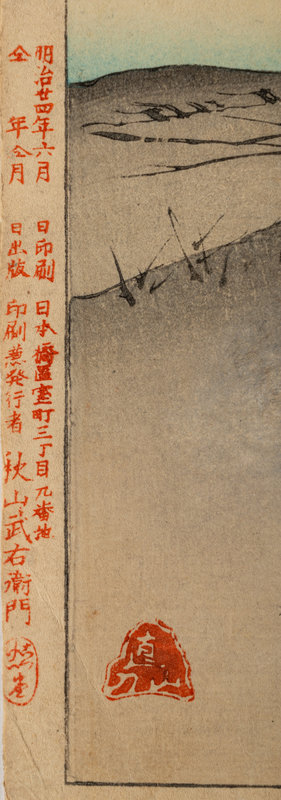 明治廿四年六月 日印刷 日本橋區室町三丁目九番地
仝 年仝月 日出版 印刷兼発行者 秋山武右衛門